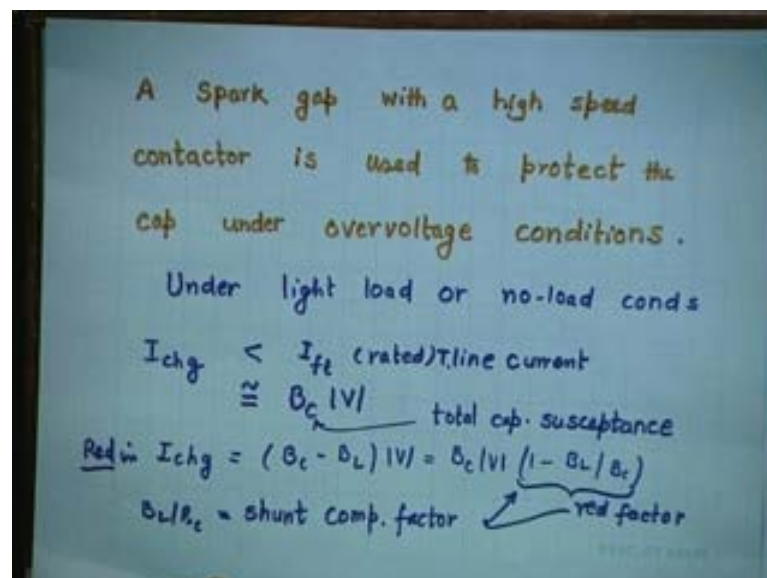 A Spark gap with a high speed
contactor is used to protect the
cap under overvoltage conditions.
Under light load or no-load conds
I_chg < I_fl (rated) T.line current
≅ B_C |V| total cap. susceptance
Red in I_chg = (B_C - B_L) |V| = B_C |V| (1 - B_L / B_C)
B_L/B_C = shunt comp. factor red factor